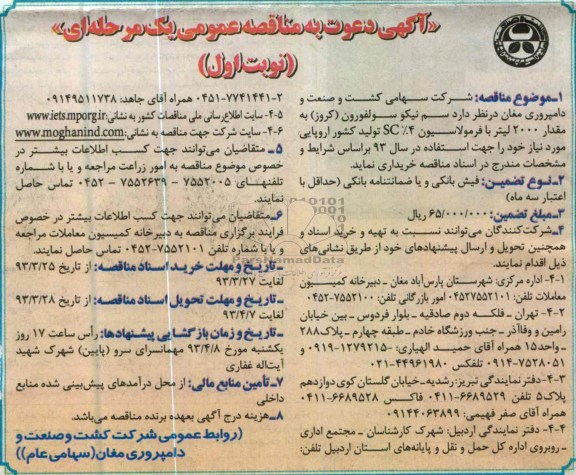 «آگهی دعوت به مناقصه عمومی یک مرحله‌ای»
(نوبت اول)
۱ـ موضوع مناقصه: شرکت سهامی کشت و صنعت و
دامپروری مغان در نظر دارد سم نیکو سولفورون (کروز) به
مقدار ۲۰۰۰ لیتر با فرمولاسیون ۴٪ SC تولید کشور اروپایی
مورد نیاز خود را جهت استفاده در سال ۹۳ براساس شرایط و
مشخصات مندرج در اسناد مناقصه خریداری نماید.
۲ـ نوع تضمین: فیش بانکی و یا ضمانتنامه بانکی (حداقل با
اعتبار سه ماه)
۳ـ مبلغ تضمین: ۶۵/۰۰۰/۰۰۰ ریال
۴ـ شرکت‌کنندگان می‌توانند نسبت به تهیه و خرید اسناد و
همچنین تحویل و ارسال پیشنهادهای خود از طریق نشانی‌های
ذیل اقدام نمایند.
۱-۴- اداره مرکزی: شهرستان پارس‌آباد مغان - دبیرخانه کمیسیون
معاملات تلفن: ۰۴۵۲۷۵۵۲۱۰۱ امور بازرگانی تلفن: ۷۵۵۲۱۰۰-۰۴۵۲
۲-۴- تهران - فلکه دوم صادقیه - بلوار فردوس - بین خیابان
رامین و وفاآذر - جنب ورزشگاه خادم - طبقه چهارم - پلاک ۲۸۸
- واحد ۱۵ همراه آقای حمید الهیاری: ۱۲۷۹۲۱۵-۰۹۱۹ و
۷۵۲۸۰۵۱-۰۹۱۴ تلفکس ۴۴۹۶۱۹۸۰-۰۲۱
۳-۴- دفتر نمایندگی تبریز: رشدیه-خیابان گلستان کوی دوازدهم
پلاک ۵ تلفن ۶۶۸۹۵۲۹-۰۴۱۱ فاکس ۶۶۸۹۵۲۸-۰۴۱۱
همراه آقای صفر فهیمی: ۰۹۱۴۴۰۶۳۸۹۹
۴-۴- دفتر نمایندگی اردبیل: شهرک کارشناسان - مجتمع اداری
- روبروی اداره کل حمل و نقل و پایانه‌های استان اردبیل تلفن:
۲-۷۷۴۱۴۴۱-۰۴۵۱ همراه آقای جاهد: ۰۹۱۴۹۵۱۱۷۳۸
۵-۴- سایت اطلاع‌رسانی ملی مناقصات کشور به نشانی: www.iets.mporg.ir
۶-۴- سایت شرکت جهت مناقصه به نشانی: www.moghanind.com
۵ـ متقاضیان می‌توانند جهت کسب اطلاعات بیشتر در
خصوص موضوع مناقصه به امور زراعت مراجعه و یا با شماره
تلفنهای ۷۵۵۲۰۰۵ - ۷۵۵۲۶۳۹ - ۰۴۵۲ تماس حاصل
نمایند.
۶ـ متقاضیان می‌توانند جهت کسب اطلاعات بیشتر در خصوص
فرایند برگزاری مناقصه به دبیرخانه کمیسیون معاملات مراجعه
و یا با شماره تلفن ۷۵۵۲۱۰۱-۰۴۵۲ تماس حاصل نمایند.
ـ تاریخ و مهلت خرید اسناد مناقصه: از تاریخ ۹۳/۳/۲۵
لغایت ۹۳/۳/۲۷
ـ تاریخ و مهلت تحویل اسناد مناقصه: از تاریخ ۹۳/۳/۲۸
لغایت ۹۳/۴/۷
ـ تاریخ و زمان بازگشایی پیشنهادها: رأس ساعت ۱۷ روز
یکشنبه مورخ ۹۳/۴/۸ مهمانسرای سرو (پایین) شهرک شهید
آیت‌اله غفاری
۷ـ تأمین منابع مالی: از محل درآمدهای پیش‌بینی شده منابع
داخلی
۸ـ هزینه درج آگهی بعهده برنده مناقصه می‌باشد.
(روابط عمومی شرکت کشت و صنعت و
دامپروری مغان (سهامی عام))
ParsNamadData